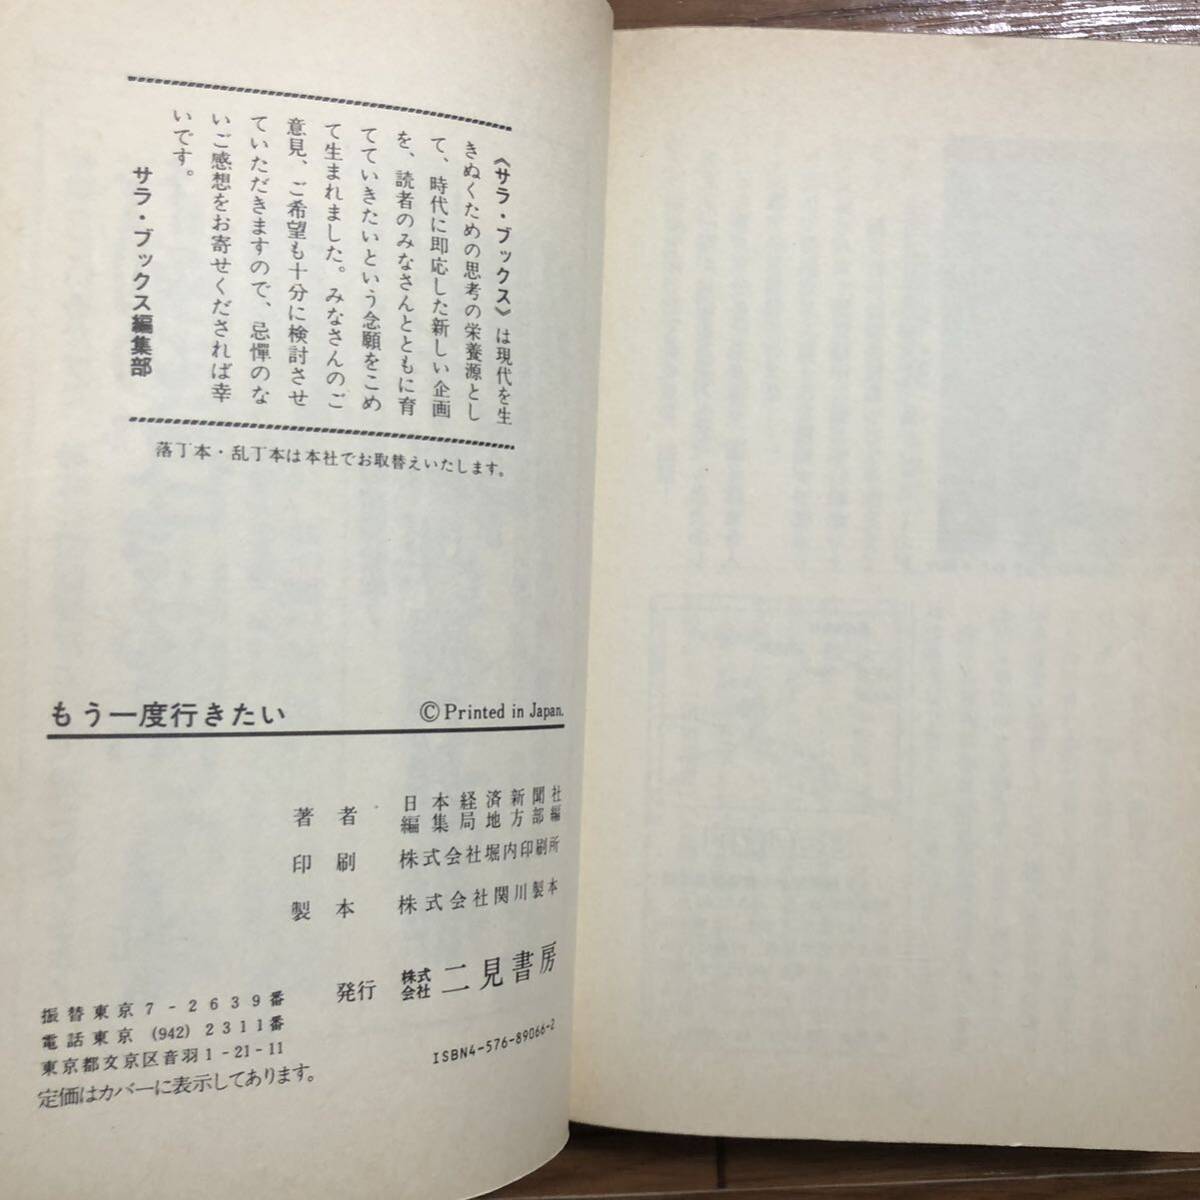 《サラ・ブックス》は現代を生
きぬくための思考の栄養源とし
て、時代に即応した新しい企画
を、読者のみなさんとともに育
てていきたいという念願をこめ
て生まれました。みなさんのご
意見、ご希望も十分に検討させ
ていただきますので、忌憚のな
いご感想をお寄せくだされば幸
いです。
サラ・ブックス編集部
落丁本・乱丁本は本社でお取替えいたします。
もう一度行きたい ©Printed in Japan.
著者 日本経済新聞社
編集局地方部編
印刷 株式会社堀内印刷所
製本 株式会社関川製本
発行 株式会社 二見書房
振替東京7-2639番
電話東京(942)2311番
東京都文京区音羽1-21-11
定価はカバーに表示してあります。
ISBN4-576-89066-2